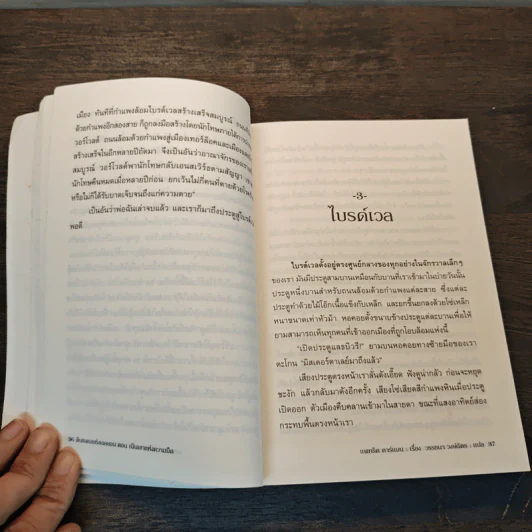 เมือง ทันทีที่กำแพงล้อมไบรด์เวลสร้างเสร็จสมบูรณ์
ด้วยกำแพงอีกสองสาย ก็ถูกลงมือสร้างโดยนักโทษภายใต้การ
วอร์โวลด์ ถนนล้อมด้วยกำแพงสู่เมืองเทอร์ล็อคและเมือง
สร้างเสร็จในอีกหลายปีถัดมา จึงเป็นอันว่าอาณาจักรของเรา
สมบูรณ์ วอร์โวลด์พานักโทษกลับเอนสเวิร์ธตามสัญญา
นักโทษคืนหมดเมื่อหลายปีก่อน ยกเว้นไม่กี่คนที่ตายด้วย
หรือไม่ก็ได้รับบาดเจ็บจนถึงแก่ความตาย"
เป็นอันว่าพ่อฉันเล่าจบแล้ว และเราก็มาถึงประตูสู่ไบรด์
พอดี
-3-
ไบรด์เวล
ไบรด์เวลตั้งอยู่ตรงศูนย์กลางของทุกอย่างในจักรวาลเล็กๆ
ของเรา มันมีประตูสามบานเหมือนกับบานที่เราเข้ามาในบ่ายวันนั้น
ประตูหนึ่งบานสำหรับถนนล้อมด้วยกำแพงแต่ละสาย ซึ่งแต่ละ
ประตูทำด้วยไม้โอ๊กเนื้อแข็งกับเหล็ก และยกขึ้นยกลงด้วยโซ่เหล็ก
หนาขนาดเท่าหัวม้า หอคอยตั้งขนาบข้างประตูแต่ละบานเพื่อให้
ยามสามารถเห็นทุกคนที่เข้าออกเมืองที่ถูกโอบล้อมแห่งนี้
"เปิดประตูแลธบิวรี่!" ยามบนหอคอยทางซ้ายมือของเรา
ตะโกน "มิสเตอร์ดาเลย์มาถึงแล้ว"
เสียงประตูตรงหน้าเราลั่นดังเอี๊ยด ฟังดูน่ากลัว ก่อนจะหยุด
ชะงัก แล้วกลับมาดังอีกครั้ง เสียงโซ่เสียดสีกำแพงหินเมื่อประตู
เปิดออก ตัวเมืองคืบคลานเข้ามาในสายตา ขณะที่แสงอาทิตย์ส่อง
กระทบพื้นตรงหน้าเรา
36 ตอน
แพทริค คาร์แมน : เรื่อง วรรธนา วงษ์ฉัตร : แปล 37